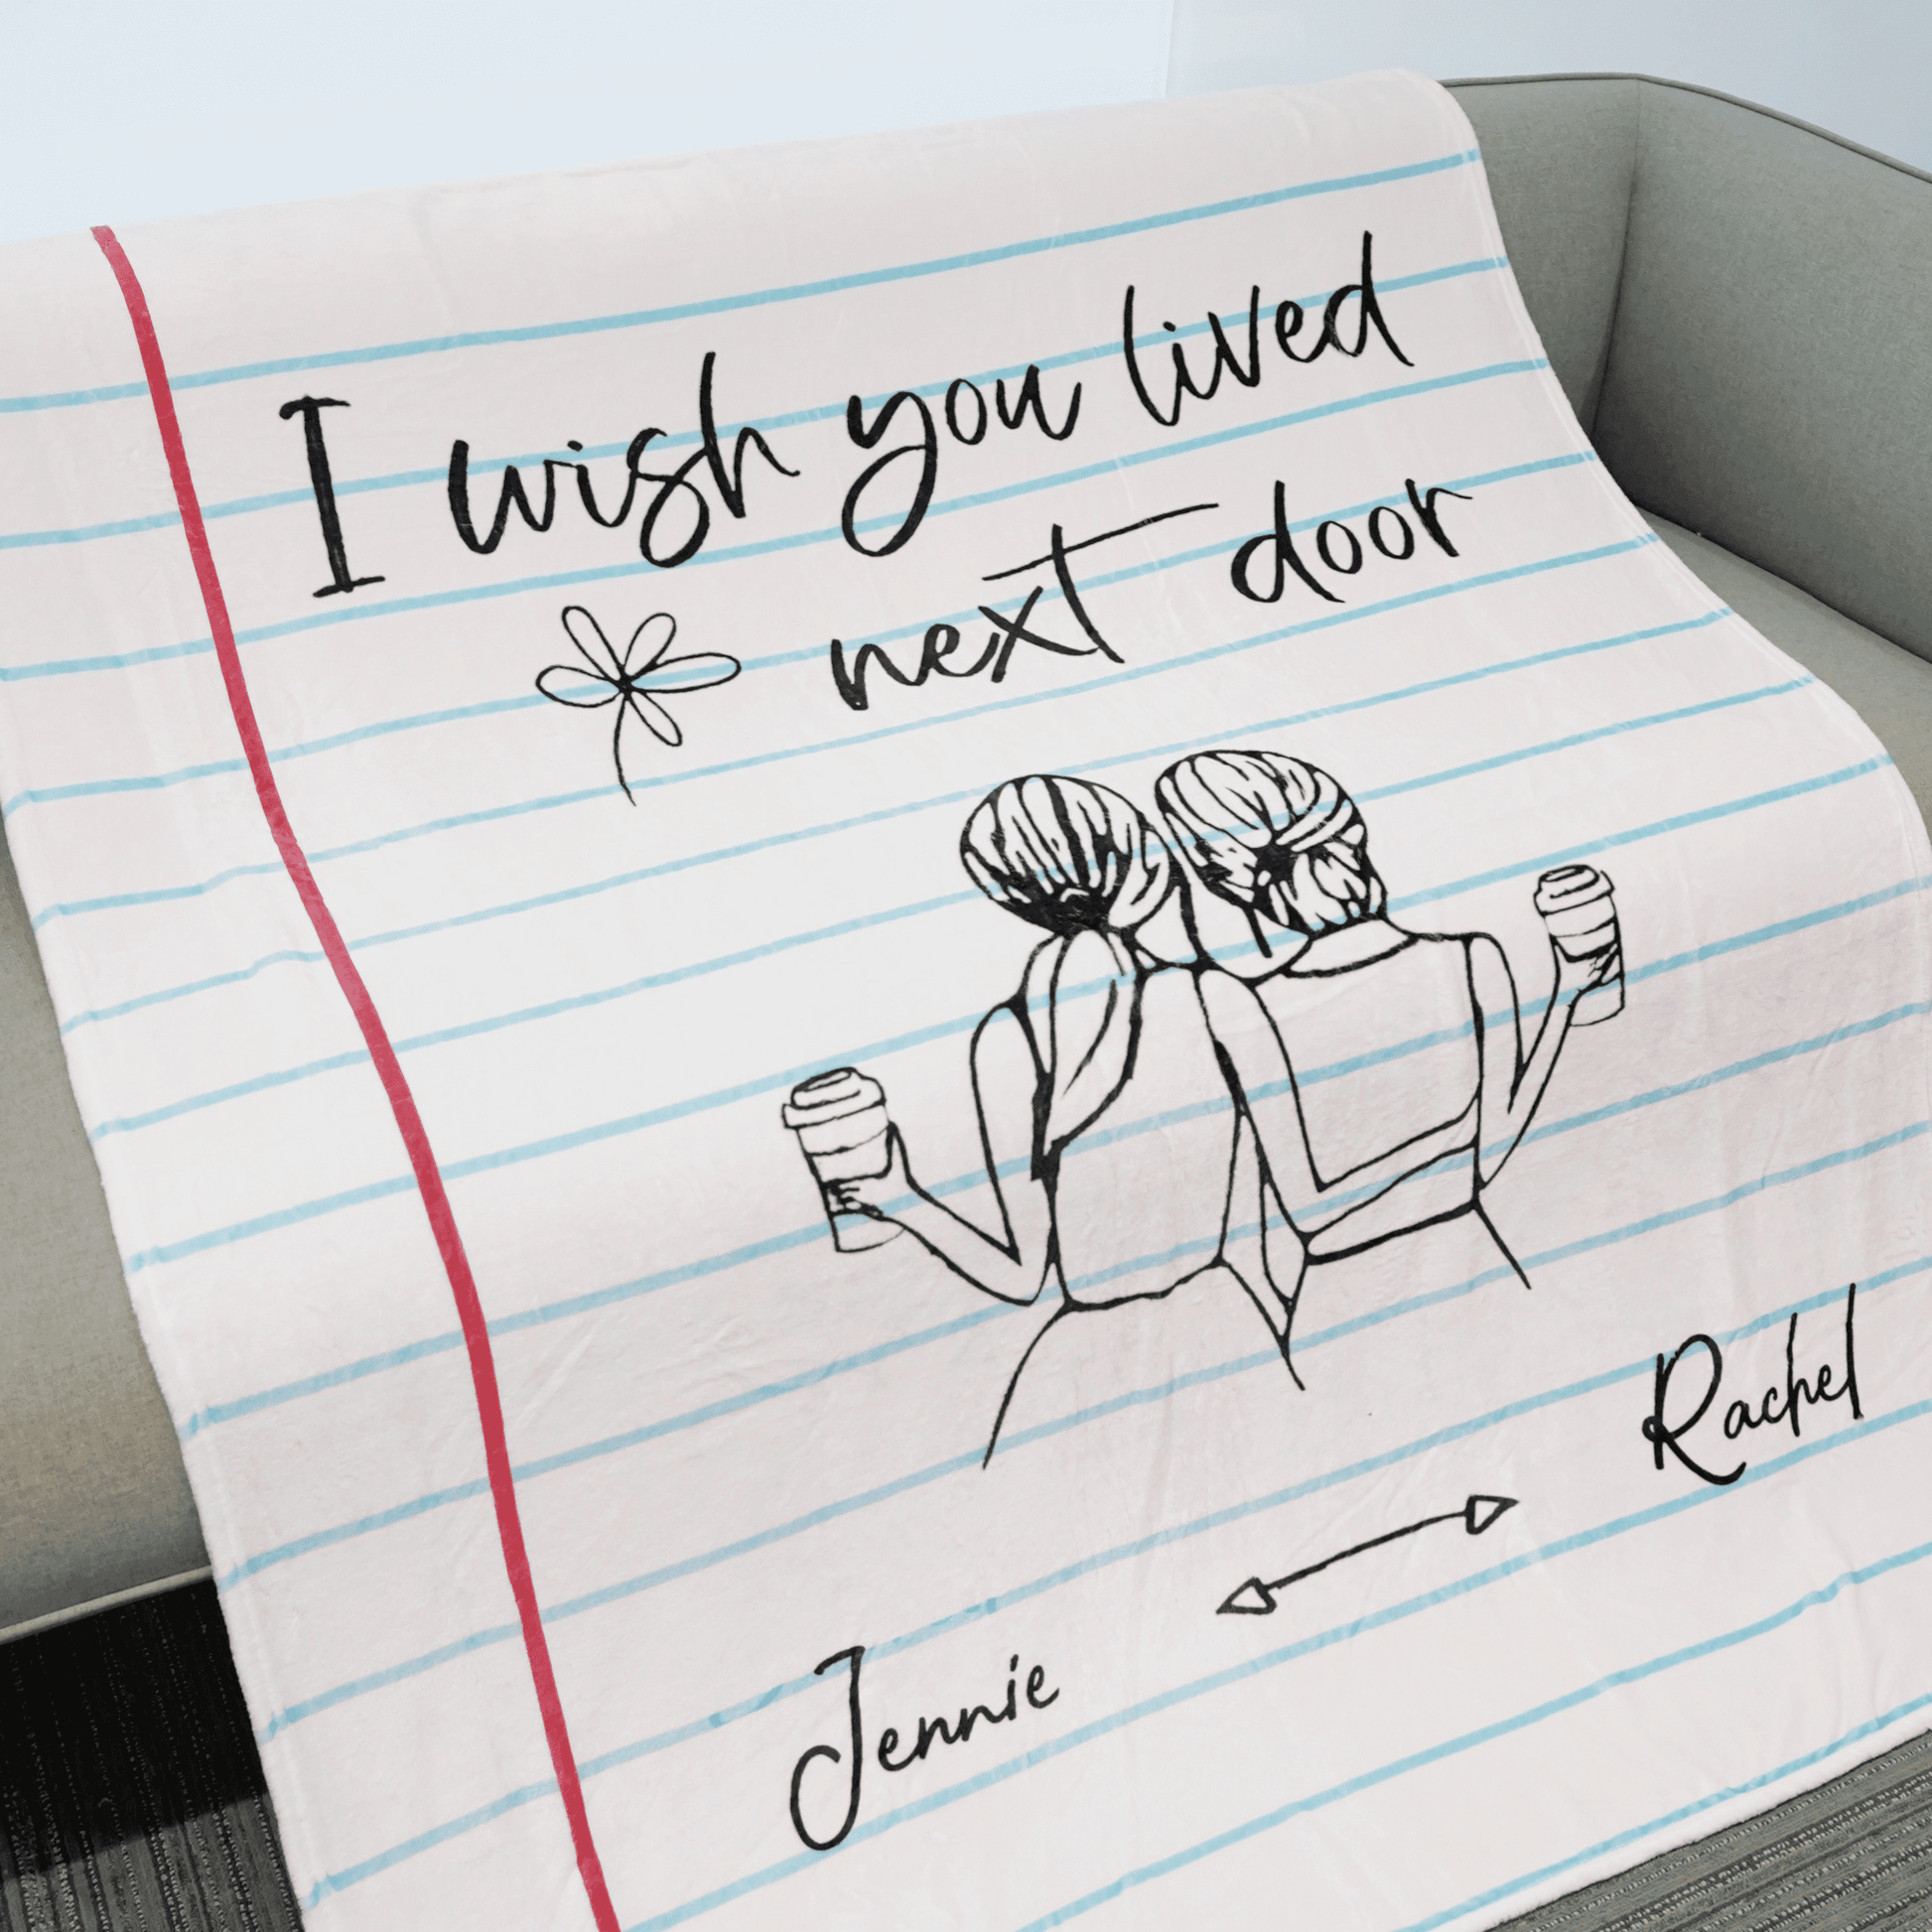 I wish you lived
next door
Rachel
Jennie